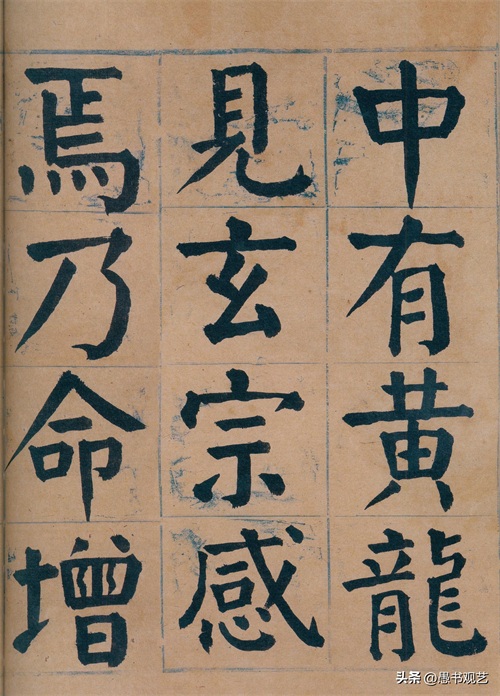 中有黄龍
見玄宗感
焉乃命增
头条 @愚书观艺